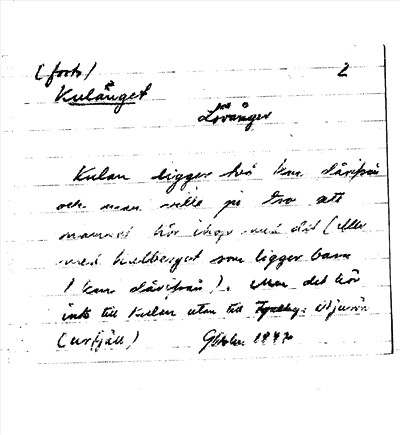 (forts) 2
Kulänget
Lövånger
Kulan ligger två km därifrån
och man ville ju tro att
namnet hör ihop med det (eller
med kulberget som ligger bara
1 km därifrån). Men det hör
inte till Kulan utan till
(urfjäll) G